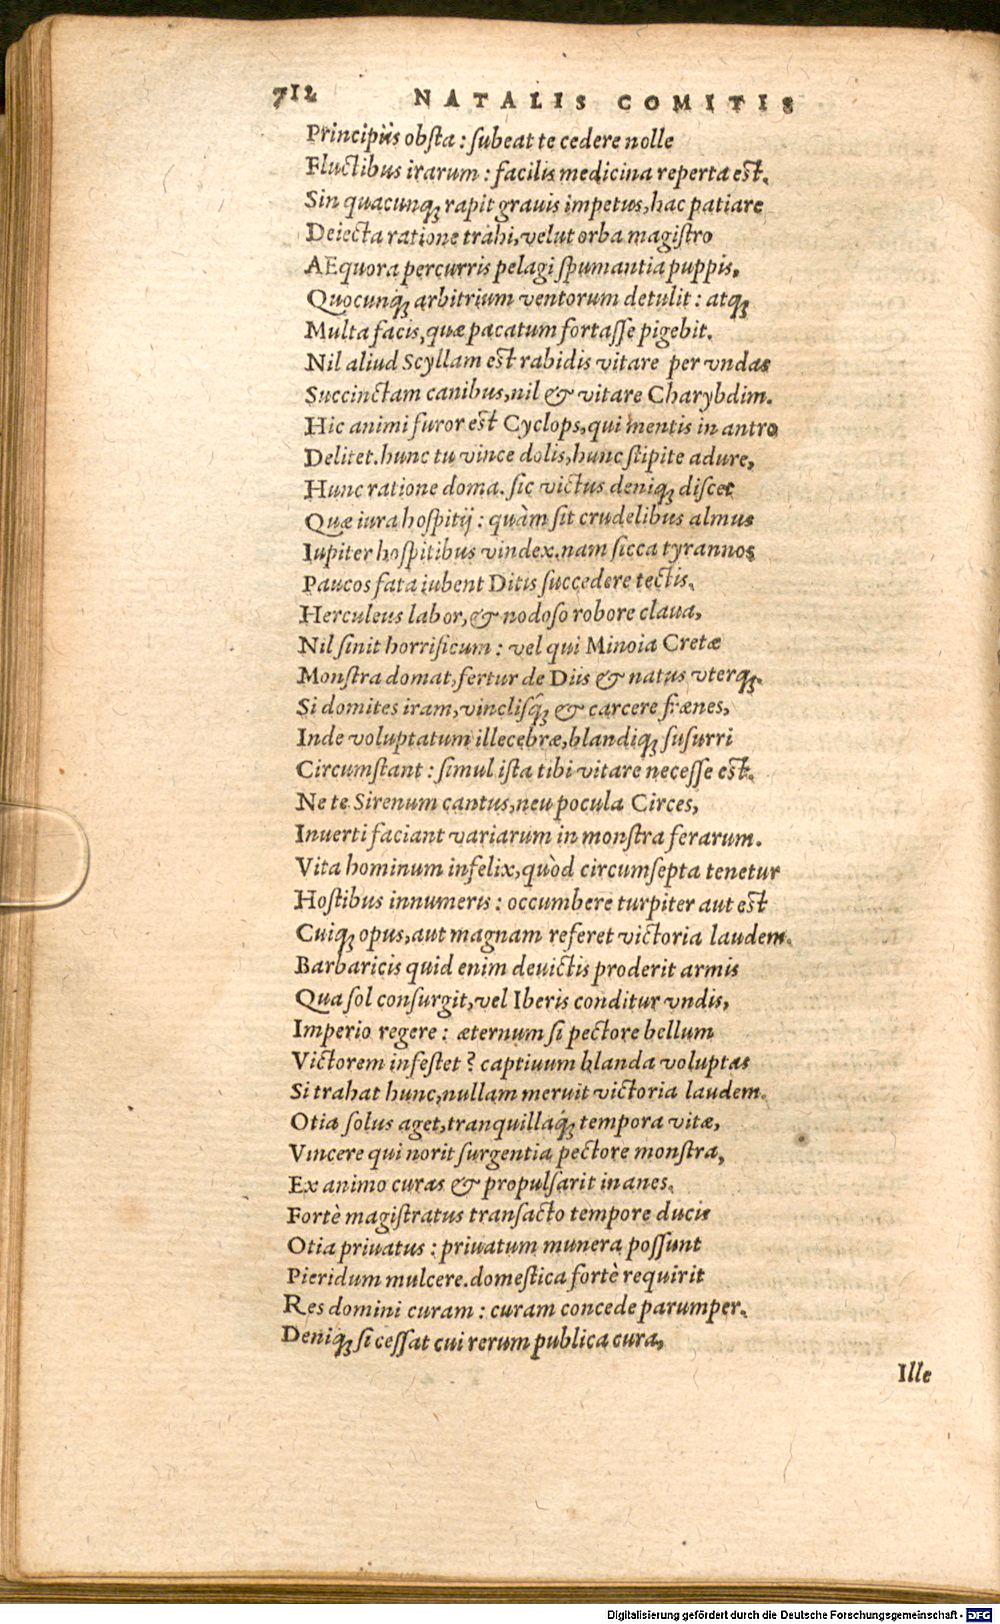 712 NATALIS COMITIS
Principiis obsta : ſubeat te cedere nolle
Fluctibus irarum : facilis medicina reperta est.
Sin quacunq; rapit grauis impetus, hac patiare
Deiecta ratione trahi, velut orba magiſtro
AEquora percurris pelagi ſpumantia puppis,
Quocunq; arbitrium ventorum detulit : atq;
Multa facis, quæ pacatum fortaſſe pigebit.
Nil aliud Scyllam est rabidis vitare per vndas
Succinctam canibus, nil & vitare Charybdim.
Hic animi furor est Cyclops, qui mentis in antro
Delitet. hunc tu vince dolis, hunc ſtipite adure,
Hunc ratione doma. ſic victus deniq; diſcet
Quæ iura hoſpitij : quàm ſit crudelibus almus
Iupiter hoſpitibus vindex. nam ſicca tyrannos
Paucos fata iubent Ditis ſuccedere tectis.
Herculeus labor, & nodoſo robore claua,
Nil ſinit horrificum : vel qui Minoia Cretæ
Monſtra domat, fertur de Diis & natus vterq;.
Si domites iram, vinclisq́; & carcere frænes,
Inde voluptatum illecebræ, blandiq; ſuſurri
Circumſtant : ſimul iſta tibi vitare neceſſe est.
Ne te Sirenum cantus, neu pocula Circes,
Inuerti faciant variarum in monſtra ferarum.
Vita hominum infelix, quòd circumſepta tenetur
Hoſtibus innumeris : occumbere turpiter aut est
Cuiq; opus, aut magnam referet victoria laudem.
Barbaricis quid enim deuictis proderit armis
Qua ſol conſurgit, vel Iberis conditur vndis,
Imperio regere : æternum ſi pectore bellum
Victorem infeſtet ? captiuum blanda voluptas
Si trahat hunc, nullam meruit victoria laudem.
Otia ſolus aget, tranquillaq́; tempora vitæ,
Vincere qui norit ſurgentia pectore monſtra,
Ex animo curas & propulſarit inanes.
Fortè magiſtratus tranſacto tempore ducis
Otia priuatus : priuatum munera poſſunt
Pieridum mulcere. domeſtica fortè requirit
Res domini curam : curam concede parumper.
Deniq; ſi ceſſat cui rerum publica cura,
Ille
Digitalisierung gefördert durch die Deutsche Forschungsgemeinschaft - DFG